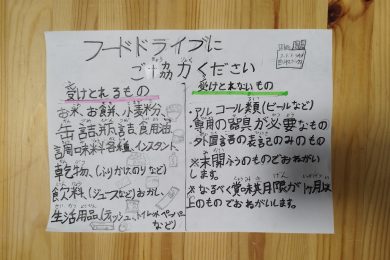 フードドライブに
ご協力ください
受けとれるもの
お米、お餅、小麦粉、
缶詰、瓶詰、食用油、
調味料各種、インスタント、
乾物、(ふりかけ、のりなど)
飲料、(ジュースなど)、おかし、
生活用品(ティッシュ、トイレットペーパーなど)
受けとれないもの
・アルコール類(ビールなど)
・専用の器具が必要なもの
・外国語の表記のみのもの
※未開ふうのものでおねがいします。
※なるべく賞味期限が1ヶ月以上のものでおねがいします。